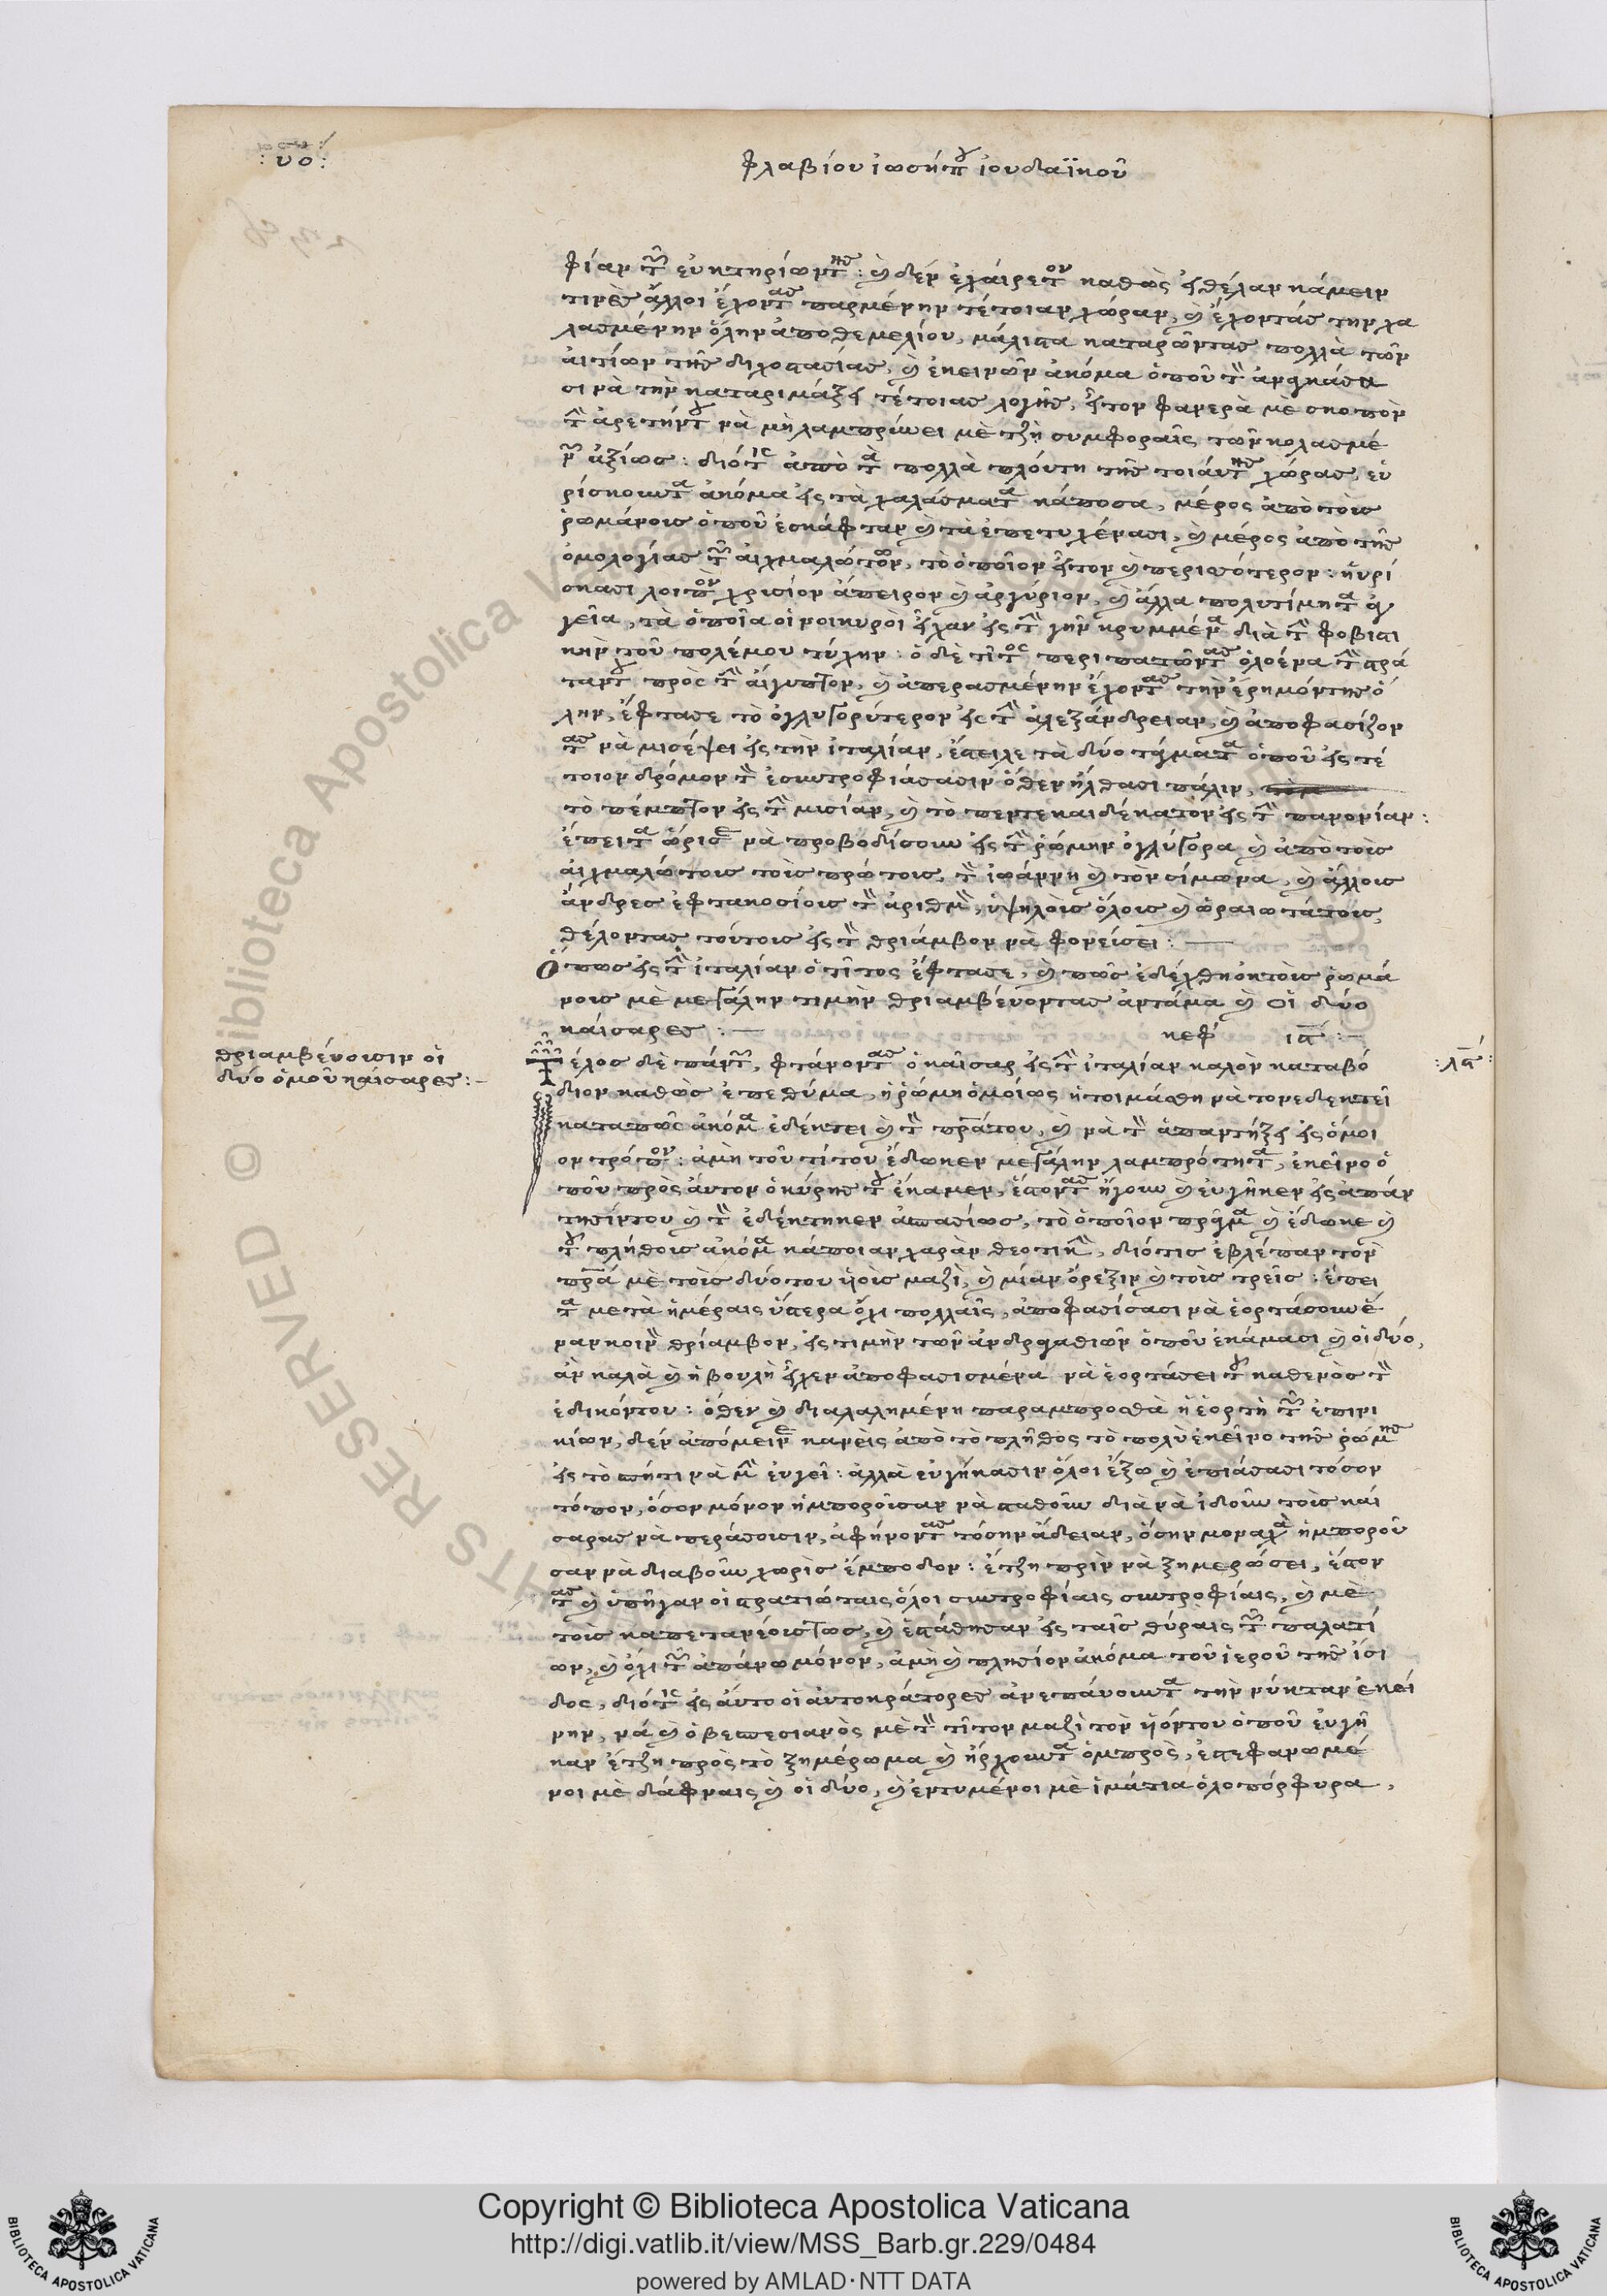 :υο:
φλαβίου ἰωσήπου ἰουδαϊκοῦ
φίαν τῶν εὐκτηρίων της: καὶ δὲν ἐχαίρετον καθὼς ἤθέλαν κάμειν
τινὲς ἄλλοι ἔχοντας παρμένην τέτοιαν χώραν, καὶ ἔχοντάς την χα
λασμένην ὅλην ἀπὸ θεμελίου, μάλιστα καταρῶντας πολλὰ τῶν
αἰτίων τῆς διχοστασίας, καὶ ἐκεινῶν ἀκόμα ὁποῦ τὸν ἀναγκάσα
σι νὰ τὴν καταριμάξει τέτοιας λογῆς, ἦτον φανερὰ μὲ σκοπὸν
τὴν ἀρετήν του νὰ μὴ λαμπρύνει μὲ τζὴ συμφοραῖς τῶν κολασμέ
νων ἀξίως: διότις ἀπὸ τὰ πολλὰ πλούτη τῆς τοιαύτης χώρας, εὑ
ρίσκουντα ἀκόμα εἰς τὰ χαλάσματα κάποσα, μέρος ἀπὸ τοὺς
ῥωμάνους ὁποῦ ἐσκάφταν καὶ τὰ ἐπετυχένασι, καὶ μέρος ἀπὸ τῆς
ὁμολογίας τῶν αἰχμαλώτων, τὸ ὁποῖον ἦτον καὶ περισσότερον: ηὑρί
σκασι λοιπὸν χρισίον ἄπειρον καὶ ἀργύριον, καὶ ἄλλα πολυτίμητα ἀγ
γεῖα, τὰ ὁποῖα οἱ νοικυροὶ εἶχαν εἰς τὴν γῆν κρυμμένα διὰ τὴν φοβιστι
κὴν τοῦ πολέμου τύχην: ὁ δὲ τῖτος περιπατῶντας ὁλοένα τὴν στρά
ταν του πρὸς τὴν αἴγυπτον, καὶ ἀπερασμένην ἔχοντας τὴν ἔρημόν της ὅ
λην, ἔφτασε τὸ ὀγλυγορύτερον εἰς τὴν ἀλεξάνδρειαν, καὶ ἀποφασίζον
τας νὰ μισέψει εἰς τὴν ἰταλίαν, ἔστειλε τὰ δύο τάγματα ὁποῦ εἰς τέ
τοιον δρόμον τὸν ἐσυντροφιάσασιν ὅθεν ἤλθασι πάλιν,
τὸ πέμπτον εἰς τὴν μισίαν, καὶ τὸ πεντεκαιδέκατον εἰς τὴν πανονίαν:
ἔπειτα ὥρισε νὰ προβοδίσουν εἰς τὴν ῥώμην ὀγλύγορα καὶ ἀπὸ τοὺς
αἰχμαλώτους τοὺς πρώτους, τὸν ἰωάννη καὶ τὸν σίμωνα, καὶ ἄλλους
ἄνδρες ἑφτακοσίους τὸν ἀριθμὸν, ὑψηλοὺς ὅλους καὶ ὡραιωτάτους,
θέλοντας τούτους εἰς τὸν θριάμβον νὰ φουείσει:
Ὅπως εἰς τὴν ἰταλίαν ὁ τῖτος ἔφτασε, καὶ πῶς ἐδέχθη ὀκ τοὺς ῥωμά
νους μὲ μεγάλην τιμὴν θριαμβεύοντας ἀντάμα καὶ οἱ δύο
καίσαρες: κεφ ια:
θριαμβεύουσιν οἱ
δύο ὁμοῦ καίσαρες:
:λα:
Τέλος δὲ πάντων, φτάνοντας ὁ καῖσαρ εἰς τὴν ἰταλίαν καλὸν καταβό
διον καθὼς ἐπεθύμα, ἡ ῥώμη ὁμοίως ἡτοιμάσθη νὰ τονε δεκτεῖ
καταπῶς ἀκόμα ἐδέκτει καὶ τὸν πρᾶτου, καὶ νὰ τὸν ἀπαντήξει εἰς ὅμοι
ον τρόπον: ἀμὴ τοῦ τίτου ἔδωκεν μεγάλην λαμπρότητα, ἐκεῖνο ὁ
ποῦ πρὸς αὐτον ὁ κύρης του ἔκαμεν, ἔστοντας ἤγουν καὶ εὐγῆκεν εἰς ἀπάν
τησίν του καὶ τὸν ἐδέκτηκεν ἀσπασίως, τὸ ὁποῖον πρᾶγμα καὶ ἔδωκε καὶ
τοῦ πλήθους ἀκόμα κάποιαν χαρὰν θεοτικὴν, διότις ἐβλέπαν τὸν
πρᾶ μὲ τοὺς δύο του υἱοὺς μαζὶ, καὶ μίαν ὄρεξιν καὶ τοὺς τρεῖς: ἔπει
τα μετὰ ἡμέραις ὕστερα ὄχι πολλαῖς, ἀποφασίσασι νὰ ἑορτάσουν ἕ
ναν κοινὸν θρίαμβον, εἰς τιμὴν τῶν ἀνδραγαθιῶν ὁποῦ ἐκάμασι καὶ οἱ δύο,
ἂν καλὰ καὶ ἡ βουλὴ εἶχεν ἀποφασισμένα νὰ ἑορτάσει τοῦ καθενὸς τὸν
ἐδικόντου: ὅθεν καὶ διαλαλημένη παραμπροσθὰ ἡ ἑορτὴ τῶν ἐπινι
κίων, δὲν ἀπόμεινε κανεὶς ἀπὸ τὸ πλῆθος τὸ πολὺ ἐκεῖνο τῆς ῥώμης
εἰς τὸ σπήτι νὰ μὴν εὐγεῖ: ἀλλὰ εὐγήκασιν ὅλοι ἔξω καὶ ἐπιάσασι τόσον
τόπον, ὅσον μόνον ἠμποροῦσαν νὰ σταθοῦν διὰ νὰ ἰδοῦν τοὺς καί
σαρας νὰ περάσουσιν, ἀφήνοντας τόσην ἄδειαν, ὅσην μοναχὰ ἠμποροῦ
σαν νὰ διαβοῦν χωρὶς ἔμποδον: ἔτζη πρὶν νὰ ξημερώσει, ἔστον
τας καὶ ὑπῆγαν οἱ στρατιώταις ὅλοι συντροφίαις συντροφίαις, καὶ μὲ
τοὺς καπετανέους τως, καὶ ἐστάθησαν εἰς ταῖς θύραις τῶν παλατί
ων, καὶ ὄχι τῶν ἀπάνω μόνον, ἀμὴ καὶ πλησίον ἀκόμα τοῦ ἱεροῦ τῆς ἴσι
δος, διότις εἰς αὐτο οἱ αὐτοκράτορες ἀνεπαύουντα τὴν νύκταν ἐκεί
νην, νά καὶ ὁ βεσπεσιανὸς μὲ τὸν τῖτον μαζὶ τὸν υἱόντου ὁποῦ εὐγῆ
καν ἔτζη πρὸς τὸ ξημέρωμα καὶ ἤρχουντα ὀμπρὸς, ἐστεφανωμέ
νοι μὲ δάφναις καὶ οἱ δύο, καὶ ἐντυμένοι μὲ ἱμάτια ὁλοπόρφυρα,
Copyright © Biblioteca Apostolica Vaticana
http://digi.vatlib.it/view/MSS_Barb.gr.229/0484
powered by AMLAD·NTT DATA